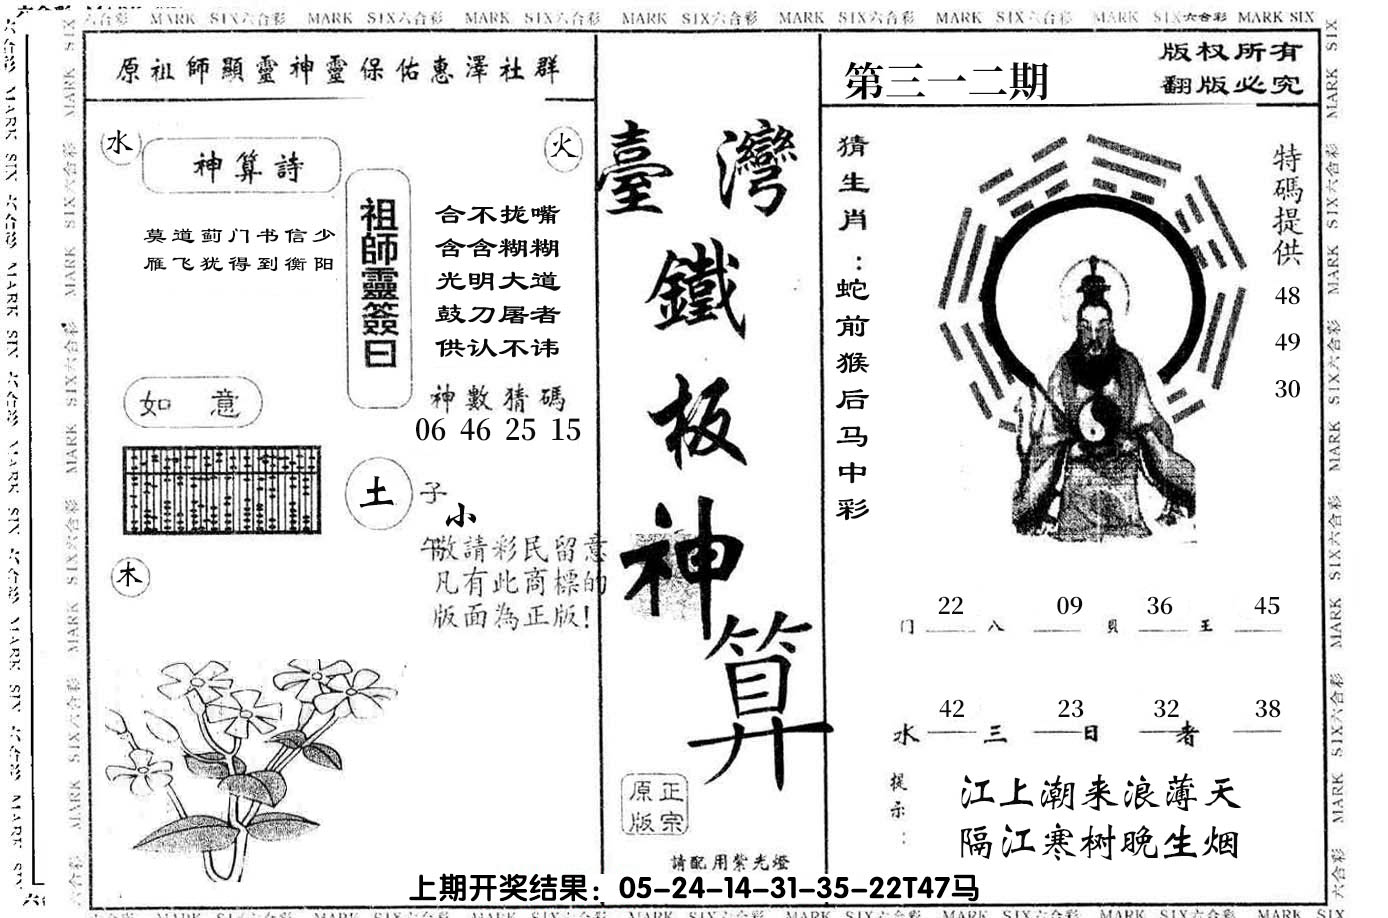 MARK SIX六合彩 MARK SIX六合彩 MARK SIX六合彩 MARK SIX六合彩 MARK SIX六合彩 MARK SIX六合彩 MARK SIX六合彩 MARK SIX
原祖師顯靈神靈保佑惠澤社群
水
神算詩
火
莫道蓟门书信少
雁飞犹得到衡阳
祖師靈簽曰
合不拢嘴
含含糊糊
光明大道
鼓刀屠者
供认不讳
神數猜碼
06 46 25 15
如 意
土
子
小
午
敬請彩民留意
凡有此商標的
版面為正版!
木
臺灣
鐵
板
神
算
正宗
原版
請配用紫光燈
第三一二期
版权所有
翻版必究
猜生肖：蛇前猴后马中彩
特碼提供
48
49
30
22 09 36 45
门 八 貝 王
42 23 32 38
水 三 日 者
提示：
江上潮来浪薄天
隔江寒树晚生烟
上期开奖结果：05-24-14-31-35-22T47马